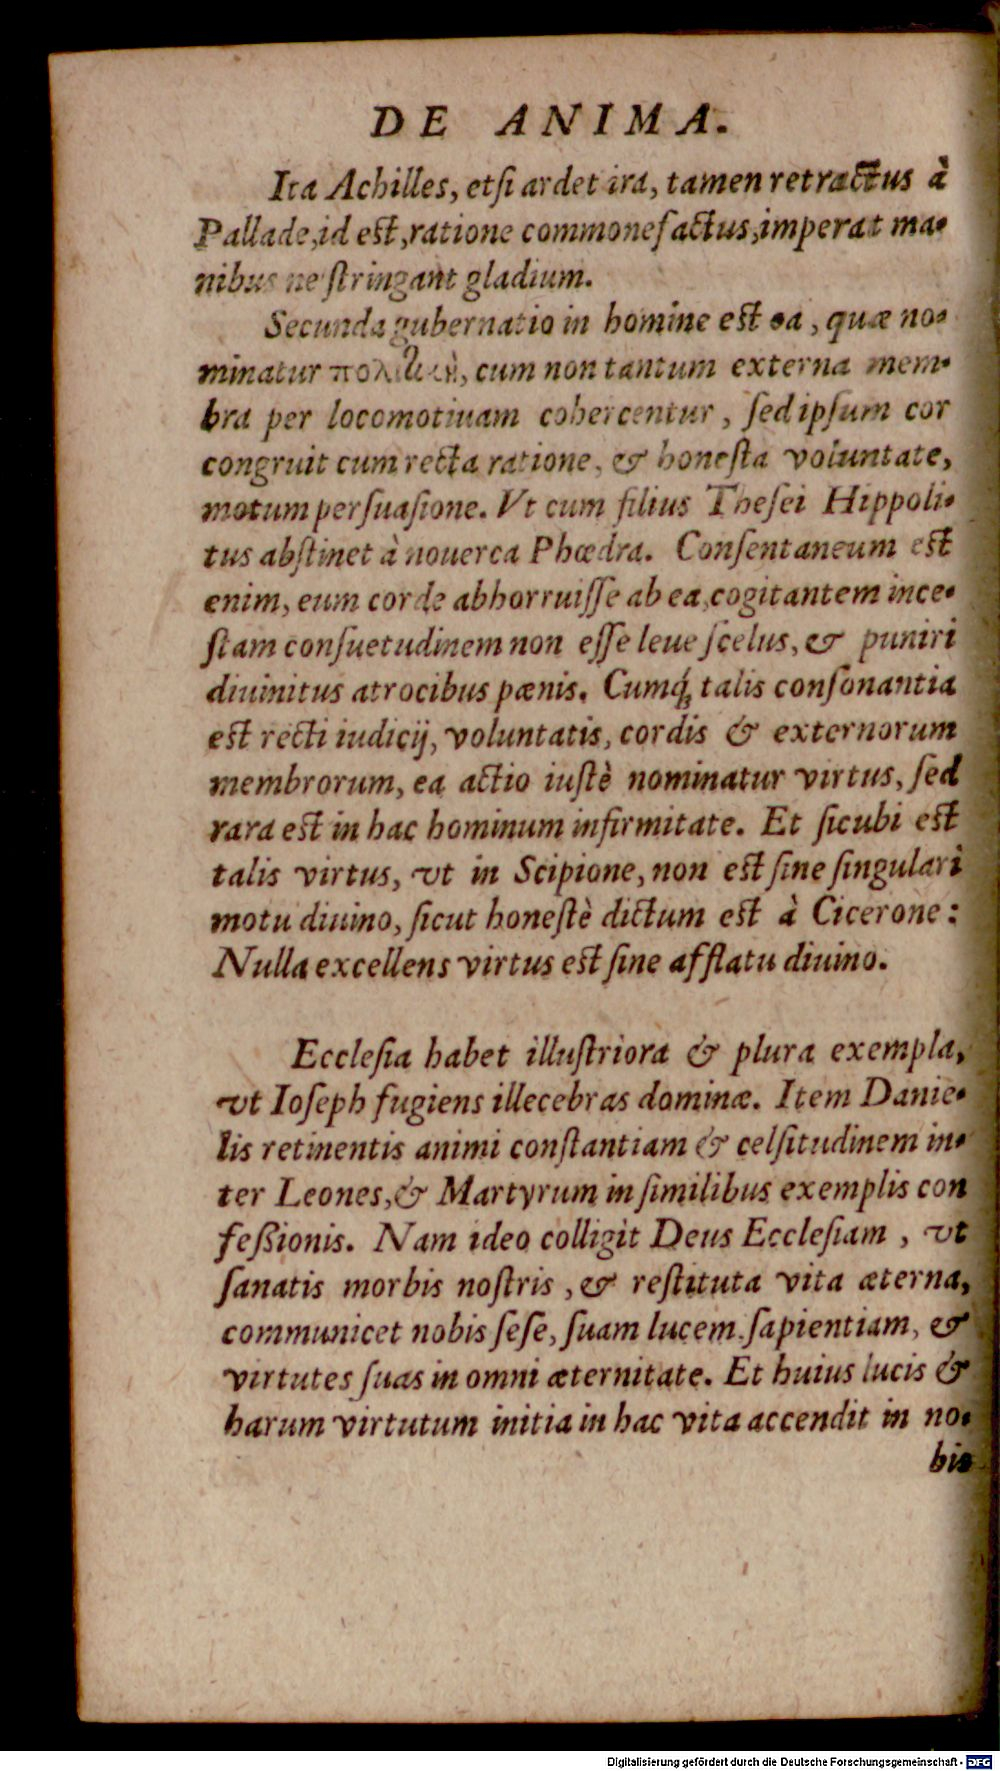 DE ANIMA.
Ita Achilles, etſi ardet ira, tamen retractus à
Pallade, id eſt, ratione commonefactus, imperat ma-
nibus ne ſtringant gladium.
Secunda gubernatio in homine eſt ea, quæ no-
minatur πολιτικὴ, cum non tantum externa mem-
bra per locomotiuam cohercentur, ſed ipſum cor
congruit cum recta ratione, & honeſta voluntate,
motum perſuaſione. Vt cum filius Theſei Hippoli-
tus abſtinet à nouerca Phœdra. Conſentaneum eſt
enim, eum corde abhorruiſſe ab ea, cogitantem ince-
ſtam conſuetudinem non eſſe leue ſcelus, & puniri
diuinitus atrocibus pœnis. Cumq́ꝫ talis conſonantia
eſt recti iudicij, voluntatis, cordis & externorum
membrorum, ea actio iuſtè nominatur virtus, ſed
rara eſt in hac hominum infirmitate. Et ſicubi eſt
talis virtus, vt in Scipione, non eſt ſine ſingulari
motu diuino, ſicut honeſtè dictum eſt à Cicerone:
Nulla excellens virtus eſt ſine afflatu diuino.
Eccleſia habet illuſtriora & plura exempla,
vt Ioſeph fugiens illecebras dominæ. Item Danie-
lis retinentis animi conſtantiam & celſitudinem in-
ter Leones, & Martyrum in ſimilibus exemplis con
feßionis. Nam ideo colligit Deus Eccleſiam, vt
ſanatis morbis noſtris, & reſtituta vita æterna,
communicet nobis ſeſe, ſuam lucem, ſapientiam, &
virtutes ſuas in omni æternitate. Et huius lucis &
harum virtutum initia in hac vita accendit in no-
bis
Digitalisierung gefördert durch die Deutsche Forschungsgemeinschaft - DFG